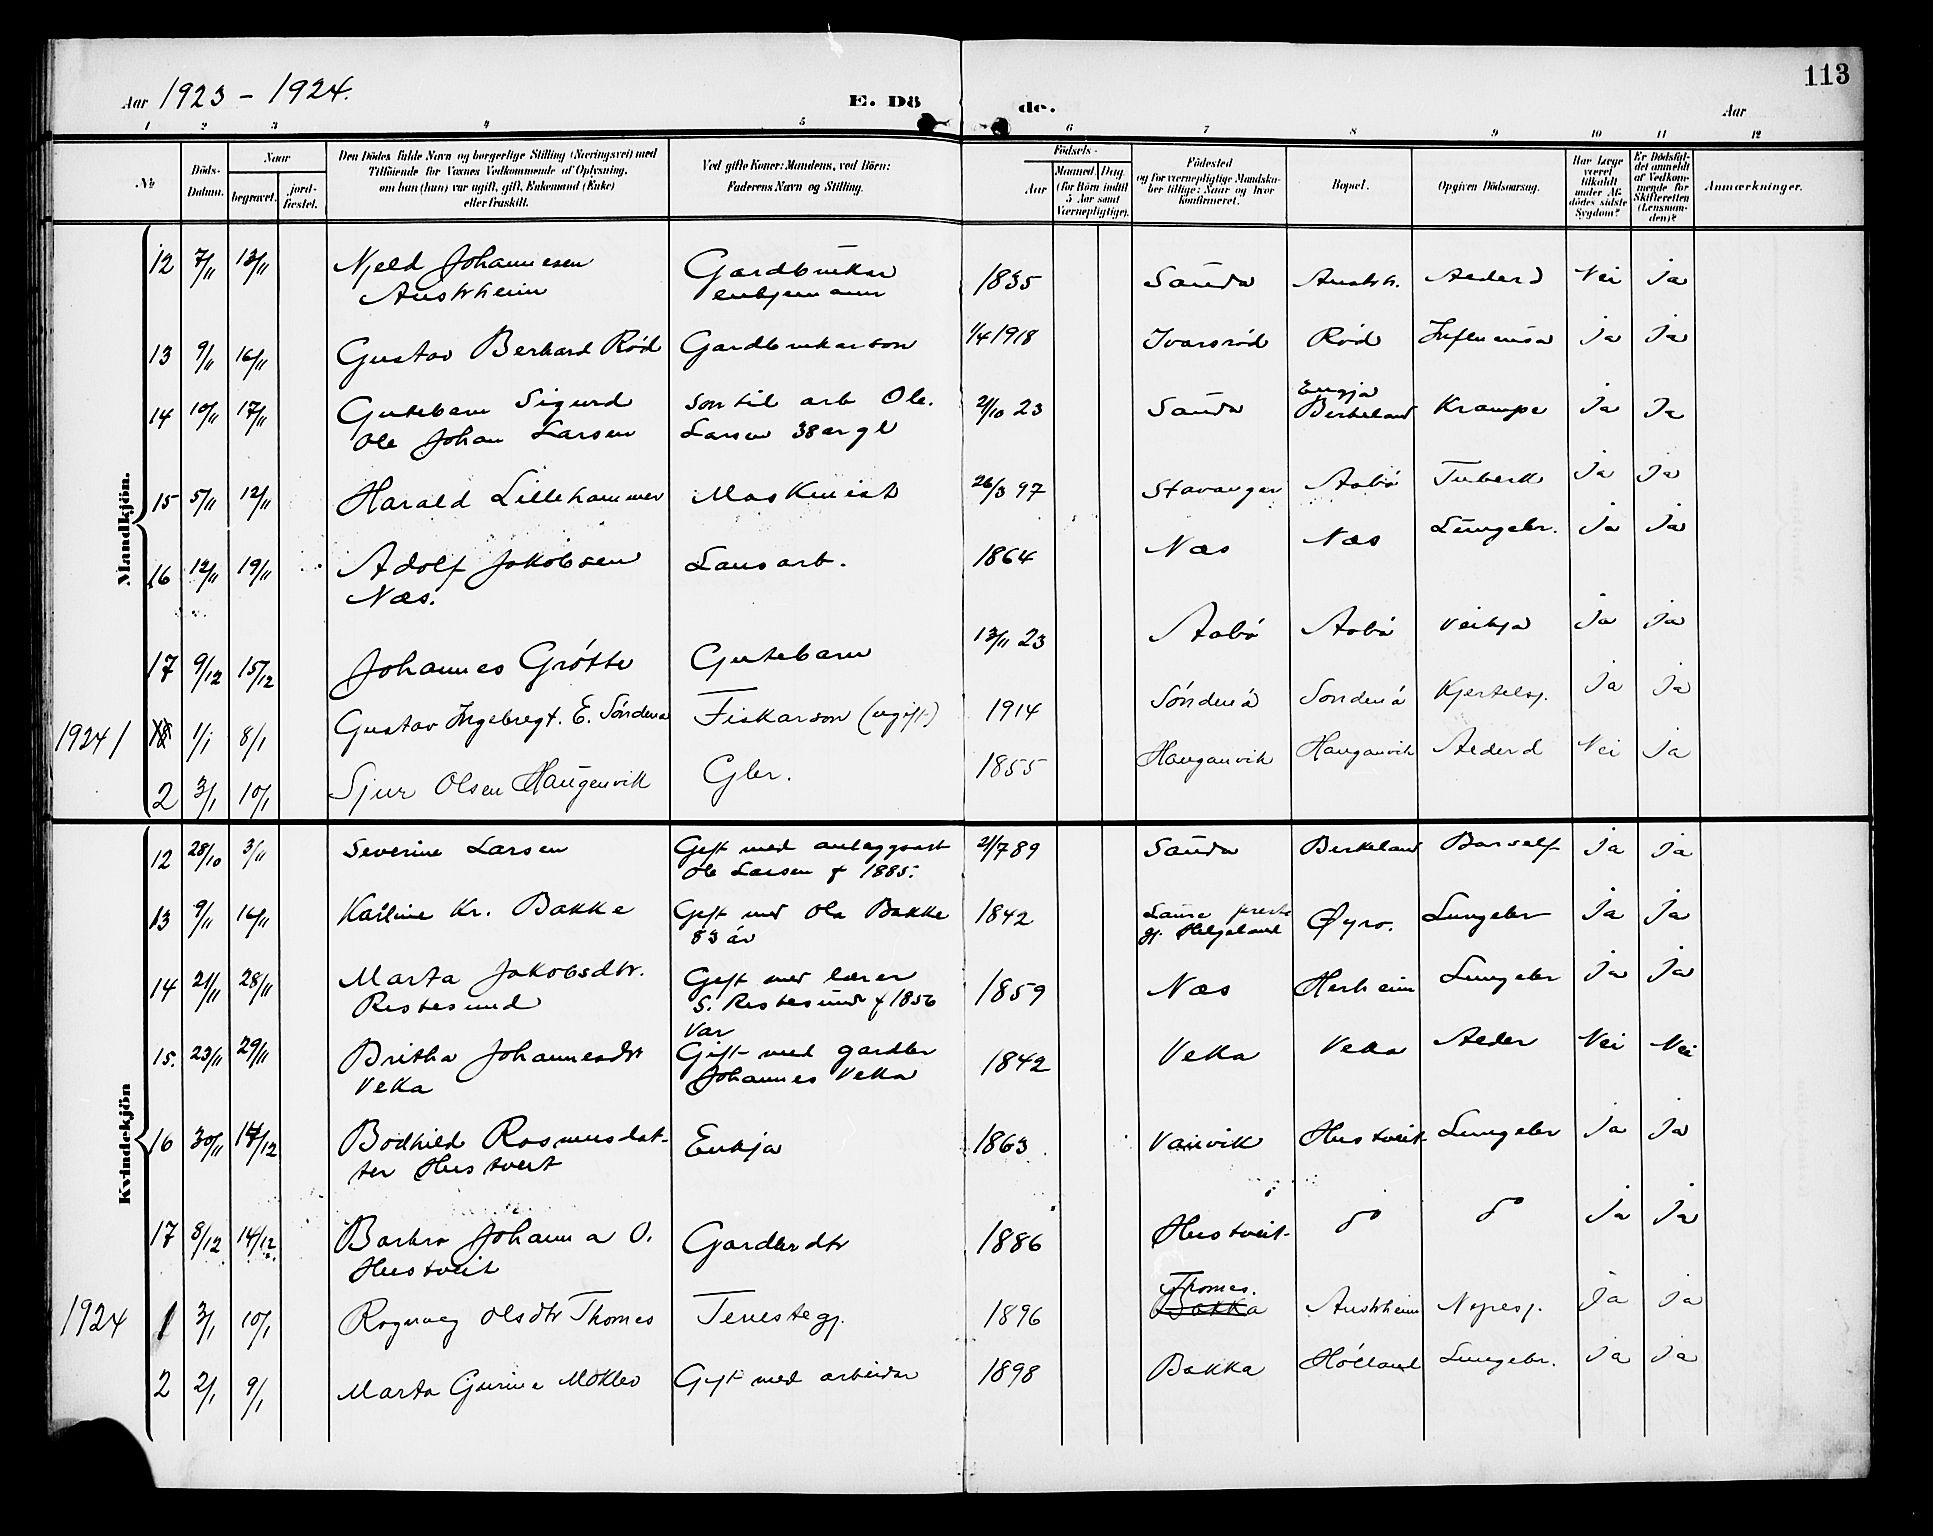 113
Aar 1923 - 1924. E. Dö de. Aar
1 2 3 4 5 6 7 8 9 10 11 12
№
Döds-Datum.
Naar
begravet.
jord-fæstet.
Den Dödes fulde Navn og borgerlige Stilling (Næringsvei) med
Tilföiende for Voxnes Vedkommende af Oplysning,
om han (hun) var ugift, gift, Enkemand (Enke)
eller fraskilt.
Ved gifte Koner: Mandens, ved Börn:
Faderens Navn og Stilling.
Födsels-
Aar
Maaned Dag
(for Börn indtil
5 Aar samt
Værnepligtige).
Födested
og for værnepligtige Mandska-
ber tillige: Naar og hvor
Konfirmeret.
Bopæl.
Opgiven Dödsaarsag.
Har Læge
været
tilkaldt
under Af-
dödes sidste
Sygdom?
Er Dödsfal-
det anmeldt
af Vedkom-
mende for
Skifteretten
(Lensman-
den)?
Anmærkninger.
Mandkjön.
12 7/11 13/11 Njeld Johannesen Gardbrukar 1835 Sauda Austrh. Alderd Nei Ja
Austrheim enkjemann
13 9/11 16/11 Gustav Berhard Rød Gardbrukarson 1/4 1918 Ivarsrød Rød Influensa Ja Ja
14 10/11 17/11 Gutebarn Sigurd son til arb Ole. 2/10 23 Sauda Engja Krampe Ja Ja
Ole Johan Larsen Larsen 38 ar gl Berkeland
15 5/11 12/11 Harald Lillehammer Maskinist 26/3 97 Stavanger Aabø Tuberk Ja Ja
16 12/11 19/11 Adolf Jakobsen Lausarb. 1864 Næs Næs Lungebr. Ja Ja
Næs.
17 9/12 15/12 Johannes Grøtte Gutebarn 13/11 23 Aabø Aabø Veikja Ja Ja
1924 / 18 1/1 8/1 Gustav Ingebregt. E. Søndenå Fiskarson (ugift) 1914 Søndenå Sondenå Kjertelsj. Ja Ja
2 3/1 10/1 Sjur Olsen Haugenvik Gbr. 1855 Hauganvik Hauganvik Alderd Nei Ja
Kvindekjön
12 28/10 3/11 Severine Larsen Gift med anleggsarb 21/7 89 Sauda Berkeland Barself Ja Ja
Ole Larsen f 1885.
13 9/11 16/11 Karline Kr. Bakke Gift med Ola Bakke 1842 Øyro. Lungebr Ja Ja
83 år gj. Helgeland
14 21/11 28/11 Marta Jakobsdtr. Gift med lærer 1859 Næs Herheim Lungebr Ja Ja
Restesund S. Restesund f 1856
15. 23/11 29/11 Britha Johannesdtr Var 1842 Veka Veka Alder Nei Nei
Veka Gift med gardbr
Johannes Veka
16 30/11 17/12 Bothild Rasmusdat- Enkja 1863 Vanvik Hustveit Lungebr Ja Ja
ter Hustveit
17 8/12 14/12. Barbro Johanna O. Gardbrdtr 1886 Hustveit do do Ja Ja
Hustveit
1924 1 3/1 10/1 Ragnveg Olsdtr Thomes Tenestegj. 1896 Thomes. Austrheim Nyresj. Ja Ja
Bakka
2 2/1 9/1 Marta Gurine Moklev Gift med arbeidar 1898 Bakka Hölland Lungebr. Ja Ja